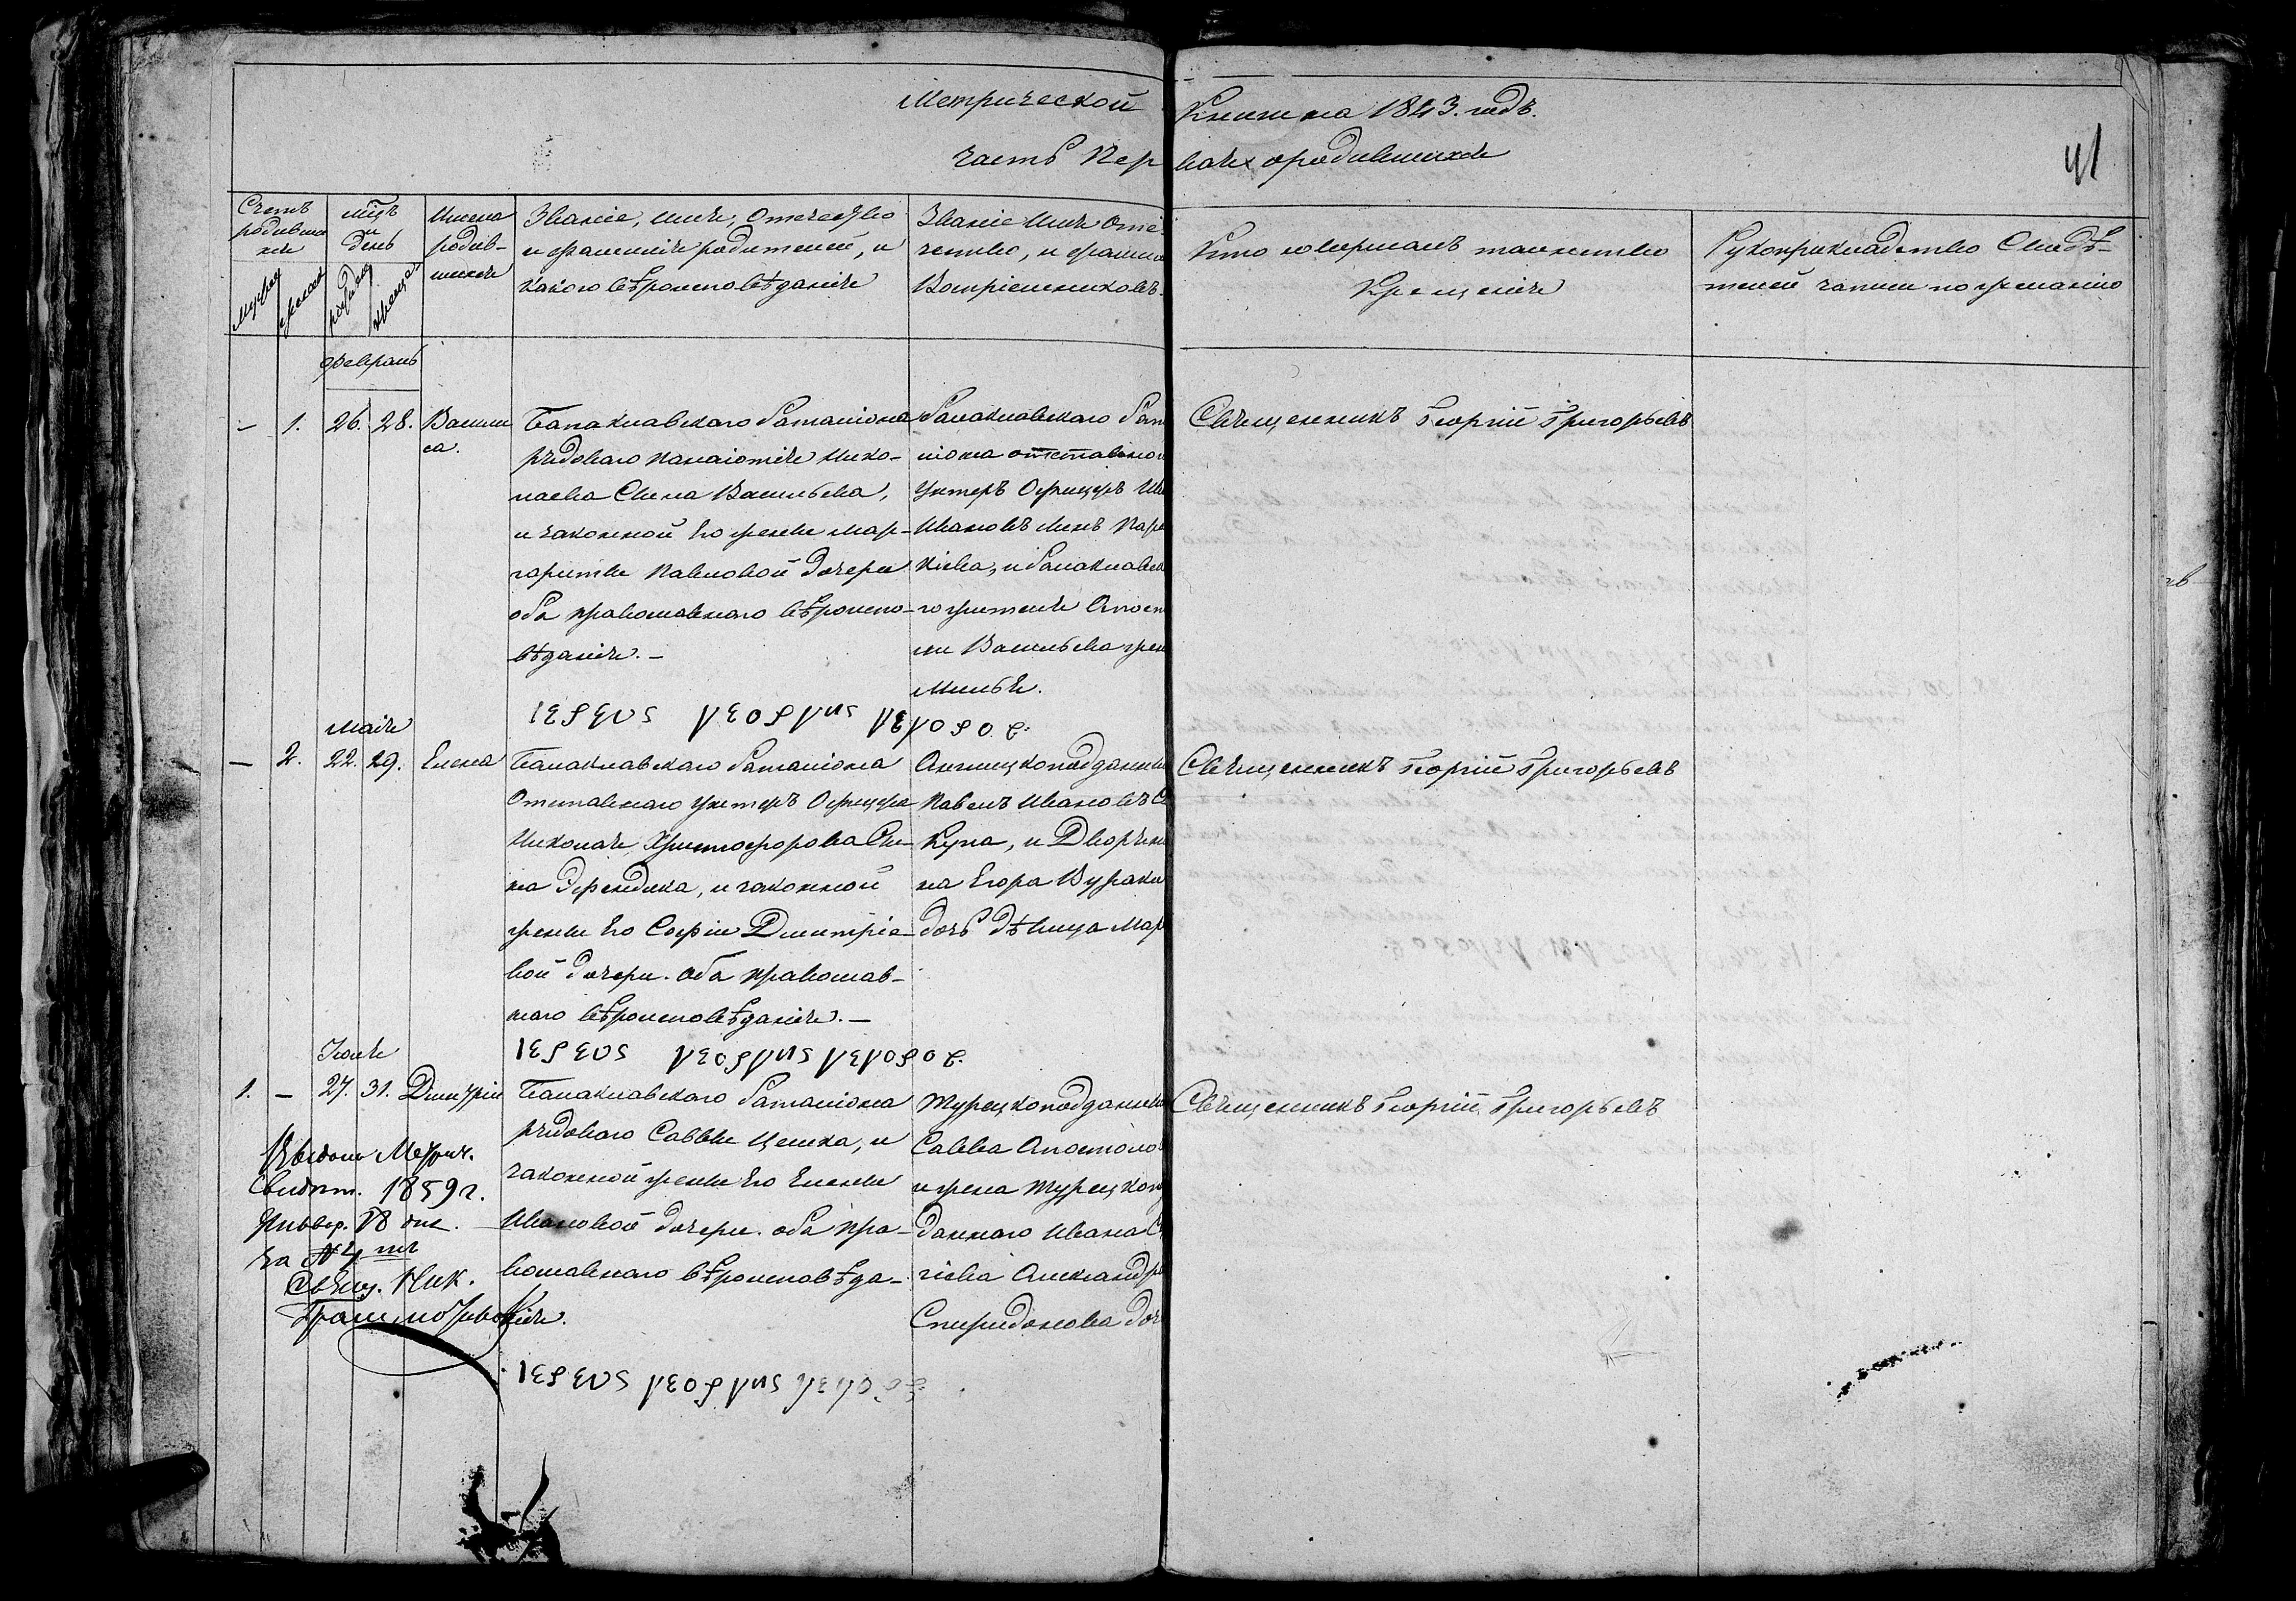 Метрической Книги на 1843. годъ.
часть Первая о родившихся
41
Счетъ родившихся
мужеска
женска
мцъ и день
рожденія
крещенія
Имена родившихся
Званіе, имя, отечество
и фамилія родителей, и
какого вѣроисповѣданія
Званіе Имя Оте
чество, и фамил
Воспріемниковъ.
Кто совершалъ таинство
Крещенія
Рукоприкладство Свидѣ-
телей записи по желанію
Февраль
– 1. 26. 28. Васили
са.
Балаклавскаго баталіона
рядоваго Панаіотія Нико-
лаева Сына Васильева,
и законной Его жены Мар-
гариты Павловой дочери
оба православнаго вѣроиспо-
вѣданія. –
Балаклавскаго бат
ліона отставной
Унтеръ Офицеръ Ив
Ивановъ Сынъ
кіева, и балаклавск
го жителя Апост
ли Васильева жен
Милья.
Священникъ Георгій Григорьевъ
ιερευς γεοργιυς γεγορο
Маія
– 2. 22. 29. Елена
Балаклавскаго баталіона
Отставнаго унтеръ Офицера
Николая Христофорова Сы-
на Эфендика, и законной
жены Его Софіи Димитріе-
вой дочери. Оба православ-
наго вѣроисповѣданія. –
Англицкоподданны
Павелъ Ивановъ С
Купа, и Дворяни
на Егора Вураки
дочь дѣвица Мар
Священникъ Георгій Григорьевъ
ιερευς γεοργιυς γεγορο
Іюня
1. – 27. 31. Димитрій
Балаклавскаго баталіона
рядоваго Саввы Целика, и
законной жены Его Елены
Ивановой дочери. оба пра-
вославнаго вѣроисповѣда-
нія.
Турецкоподданны
Савва Апостоло
и жена Турецкопо
даннаго Ивана С
гіева Александр
Спиридонова доч
Священникъ Георгій Григорьевъ
Выдано Метрич.
Свидѣт. 1859 г.
Январ. 18 дня.
За № 4 мъ
Свящ. Ник.
ιερευς γεοργιυς γεγορο